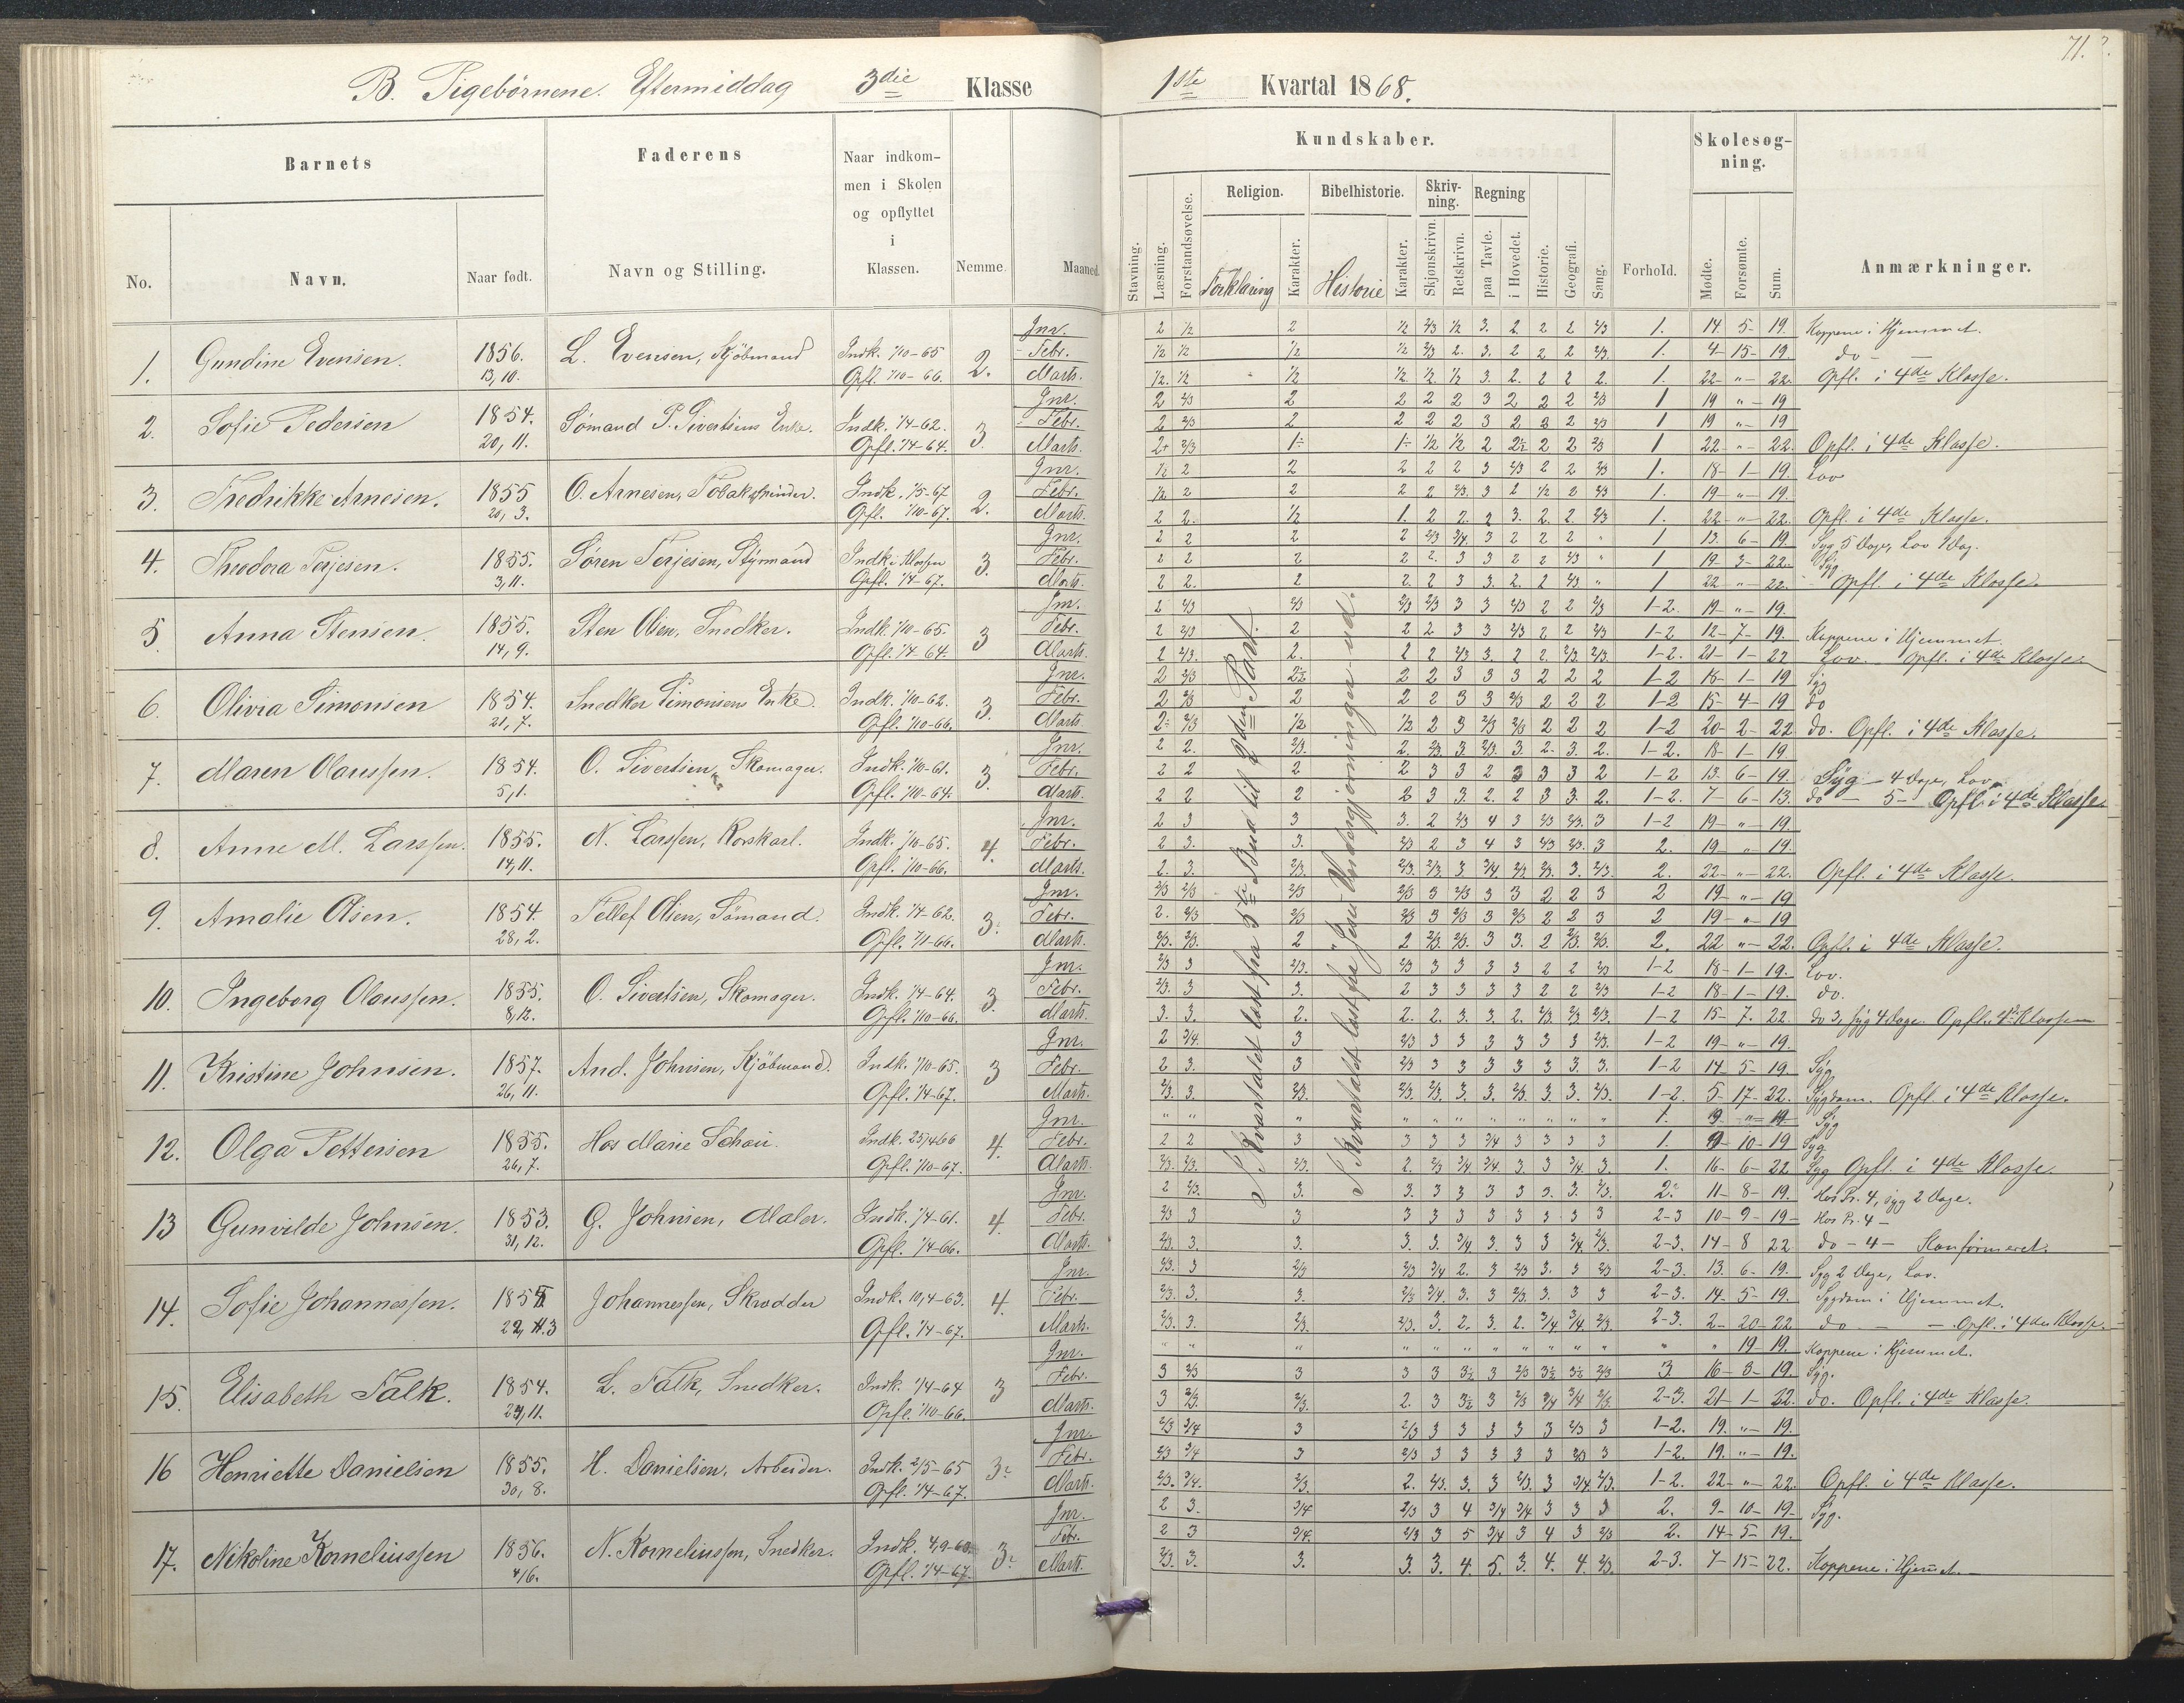 71.
B. Pigebørnene. Eftermiddag 3die Klasse
1ste Kvartal 1868.
Barnets
No.
Navn.
Naar født.
Faderens
Navn og Stilling.
Naar indkom-
men i Skolen
og opflyttet
i
Klassen.
Nemme.
Maaned.
Kundskaber.
Stavning.
Læsning.
Forstandsøvelse.
Religion.
Forklaring
Karakter.
Bibelhistorie.
Historie
Karakter.
Skriv-
ning.
Skjønskrivn.
Retskrivn.
Regning
paa Tavle.
i Hovedet.
Historie.
Geografi.
Sang.
Forhold.
Skolesøg-
ning.
Mødte.
Forsømte.
Sum.
Anmærkninger.
I Kvartalet læst fra 3die Bud til 2den Part.
I Kvartalet læst fra "Jesu Undergjerninger" ud.
1. Gundine Evensen. 1856. 13, 10. L. Evensen, Kjöbmand Indk. 1/10-65 Opfl. 1/10-66. 2.
Jnr. 2 1/2 2 1/2 2/3 1/2 3. 2. 2 2 2/3 1. 14. 5- 19. Koppene i Hjemmet.
Febr. 1/2 1/2 1/2 1/2 2/3 2. 3. 2 2 2 2/3. 1. 4- 15- 19. do —
Marts. 1/2. 1/2 1/2 1/2. 1/2. 1/2 3. 2. 2 2 2. 1. 22- " - 22. Opfl. i 4de Klasse.
2. Sofie Pedersen 1854. 20, 11. Sømand P. Sivertsens Enke. Indk. 1/4-62. Opfl. 1/4-64. 3.
Jnr. 2 2/3 2 2 2 2 3 2 2 2 2/3 1 19 " - 19
Febr. 2 2/3 2 2 2 2 3 2 2 2 2/3 1 19 " - 19
Marts. 1 22- " - 22. Opfl. i 4de Klasse.
3. Fredrikke Arnesen. 1855 20, 3. O. Arnesen, Tobakspinder. Indk. 1/5-67 Opfl. 1/10-67. 2.
Jnr. 1/2 2 2 2 2 2 3 2/3 2 2 2/3 1. 18- 1- 19. Lov
Febr. 1/2 2 2 2 2 2/3. 3 2 1/2 2 2/3 1. 19- " - 19.
Marts. 2 2. 1/2 1. 2 2. 2 3. 2. 2. 2/3 1. 22- " - 22. Opfl. i 4de Klasse.
4. Theodora Terjesen. 1855. 3, 11. Søren Terjesen, Styrmand Indk. i Klassen Opfl. 1/4-67. 3.
Jnr. 2 2 2 2 2/3 3/4. 3 2 2 2 " 1 13. 6- 19. Syg 5 Dage, Lov 1 Dag.
Febr. 2 2 2 2 2. 3 3 2 2 2/3 " 1 19- 3- 22. Syg
Marts. 2 2. 2 2. 2 3 3. 2. 2 2/3 " 1 22 " - 22. Opfl. i 4de Klasse.
5. Anna Stensen. 1855. 14, 9. Sten Olsen, Snedker. Indk. 1/10-65. Opfl. 1/4-64. 3
Jnr. 2 2/3 2/3 2/3 2/3 3 3 2/3 2 2 2/3 1-2. 19- " - 19.
Febr. 2 2/3 2 2 2 3 3 2/3 2 2 2/3 1-2. 12- 7- 19. Koppene i Hjemmet.
Marts. 2 2/3. 2. 2 2 2/3 3. 2 2. 2/3. 2/3. 1-2. 21- 1- 22 Lov. Opfl. i 4de Klasse.
6. Olivia Simonsen 1854. 21, 7. Snedker Simonsens Enke. Indk. 1/10-62. Opfl. 1/10-66. 3.
Jnr. 2 2/3 2 2 3 3 3 2 2 2 1-2 18- 1- 19 Syg
Febr. 2 2/3 2 2 2 3 3 2/3 2 2 2 1-2 15- 4- 19 do
Marts. 2 2/3 1/2 1/2 2 3 2/3 2/3 2 2 2 1-2 20- 2- 22 do. Opfl. i 4de Klasse.
7. Maren Olaussen. 1854. 5, 1. O. Sivertsen, Skomager. Indk. 1/10-61. Opfl. 1/10-64. 3.
Jnr. 2 2. 2/3. 2. 2/3. 3 2/3. 3 2. 3. 2. 1-2. 18- 1- 19
Febr. 2 2 2 2 3 3 2 3 3 3 2 1-2 13. 6- 19. Syg - 4 Dage, Lov
Marts. 2 2 2 2 3 3. 2. 2 3 3. 2. 1-2. 7- 6- 13. do - 5- Opfl. i 4de Klasse
8. Anne M. Larssen. 1855. 14, 11. N. Larssen, Korskarl. Indk. 1/10-65. Opfl. 1/10-66. 4.
Jnr. 2 3 3 3. 2 2/3 4 3 2/3 2/3. 3 1-2 19- " - 19.
Febr. 2 3. 3. 2/3 2 3 4 3 2/3 2/3. 3 2. 19 " - 19.
Marts. 2. 3. 2/3. 2/3. 2/3. 3 3/4. 2/3 2/3. 3. 2/3. 2. 22- " - 22. Opfl. i 4de Klasse.
9. Amalie Olsen. 1854. 28, 2. Tellef Olsen, Sømand. Indk. 1/4-62. Opfl. 1/1-66. 3.
Jnr. 2/3 2/3 2/3 2/3 3 2/3 3 3 2 2 3 2 19- " - 19
Febr. 2. 2/3 2/3 2/3 3 2/3 3 2/3 2 2 3 2 19- " - 19
Marts. 2/3. 2/3. 2 2 2/3. 2/3. 3 3. 2 2/3. 2/3. 2. 22 " - 22. Opfl. i 4de Klasse.
10. Ingeborg Olaussen. 1855. 8, 12. O. Sivertsen, Skomager. Indk. 1/4-64. Opfl. 1/10-66. 3
Jnr. 2/3 3 2/3. 2/3 3 3 3 3 2 2 2/3 1-2 18- 1- 19. Lov.
Febr. 2/3. 3 3. 2 3 3 3 3 2 2 2/3 1-2 18- 1- 19. do.
Marts. 3. 3. 2. 2. 2. 3. 3. 2. 2/3. 2/3 2/3. 1-2 15- 7. 22 do 3, syg 4 Dage. Opfl. 4de Klasse
11. Kristine Johnsen. 1857. 26, 11. And. Johnsen, Kjöbmand. Indk. 1/10-65. Opfl. 1/4-67. 3
Jnr. 2 3/4. 3 2/3 3 3 3 3 3 3 2/3. 1-2 19- " - 19.
Febr. 2 3. 3 2/3 3 3 3 3 3 3. 3. 1-2 14- 5- 19. Syg
Marts. 2/3. 3 2/3. 2/3. 2/3. 3. 3. 2/3. 3. 3. 2/3. 1-2. 5- 17- 22. Sygdom. Opfl. i 4de Klasse.
12. Olga Pettersen 1855. 26, 7. Hos Marie Schau. Indk. 25/4 66 Opfl. 1/10-67. 4.
Jnr. " " " " " " " " " " " 1. Syg
Febr. 2 2 3 3 3 3 3/4 3 3 3 3 1. 9- 10- 19 Syg
Marts. 2/3. 2/3. 2/3. 2. 2/3 3/4. 3/4. 3. 3 3/4. 3. 1. 16- 6- 22 Syg Opfl. i 4de Klasse.
13 Gunvilde Johnsen. 1853. 31, 12. G. Johnsen, Maler. Indk. 1/4-61. Opfl. 1/4-66. 4.
Jnr. 2 2/3. 3. 3. 3 3 3 3 3. 3. 2/3. 2. 11- 8- 19. Hos Pr. 4, syg 2 Dage.
Febr. 2/3 3 3 3 3 3 3 3 3 3 3 2-3 10- 9- 19- Hos Pr. 4-
Marts. 2/3. 3. 3. 3. 3. 3/4 3. 3 3 3/4. 2/3. 2-3. 14- 8 22 do - 4- Konfirmeret.
14. Sofie Johannessen. Johannessen, Skrædder Indk. 10, 4-63. Opfl. 1/4-67. 4.
Jnr. 2/3. 3 2/3 2/3 3/4 2. 3 2/3 3. 3 2/3 2-3. 13. 6- 19. Syg 2 Dage, Lov.
Febr. 2/3. 3. 3. 2/3 3/4. 3. 3 2/3. 3. 3 3 2-3. 14- 5- 19. Sygdom i Hjemmet.
Marts. 2/3. 3. 2/3. 2/3. 3. 2. 3. 2. 3/4 3/4. 2/3. 2-3. 2- 20- 22 do — Opfl. i 4de Klasse.
15. Elisabeth Falk. 1854. L. Falk, Snedker. Indk. 1/4-64 Opfl. 1/10-66. 3
Jnr. " " " " " " " " " " " " " 19- 19. Koppene i Hjemmet.
Febr. 3 2/3 3 3 3 3 2/3 2/3 3. 16- 3- 19. Syg.
Marts. 3 2/3. 2/3. 2. 3 3 2/3 3/4 3/4 2/3. 2-3. 21- 1- 22. do. Opfl. i 4de Klasse.
16 Henriette Danielsen 1855. 30, 8. H. Danielsen, Arbeider. Indk. 2/5-65 Opfl. 1/4-67. 3.
Jnr. 2/3 3/4 3 2/3 3 3 3 3 3 2/3 3 1-2. 19. " - 19
Febr. 2/3 3/4 3 2/3 3 3 3 3 3 2/3 3 1-2. 19. " - 19.
Marts. 2/3. 3/4. 2/3. 2. 2/3. 3. 3 2/3. 3 3/4 2/3. 1-2. 22- " - 22. Opfl. i 4de Klasse.
17. Nikoline Korneliussen 1856. 4/6. N. Korneliussen, Snedker. Indk. 4, 9-63. Opfl. 1/4-67. 3.
Jnr. 2 3. 3/4 2/3 3 4 3/4 3/4 3 3 3 2. 9- 10- 19- Syg.
Febr. 2 3 3/4. 2/3 3 5 3/4 3 4 3 2/3 2. 14- 5- 19.
Marts. 2/3. 3. 3. 3. 3. 4. 5. 3. 4. 4. 2/3. 2-3. 7- 15- 22. Koppene i Hjemet.